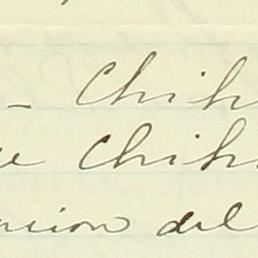 - Chih
e Chih
ncion del